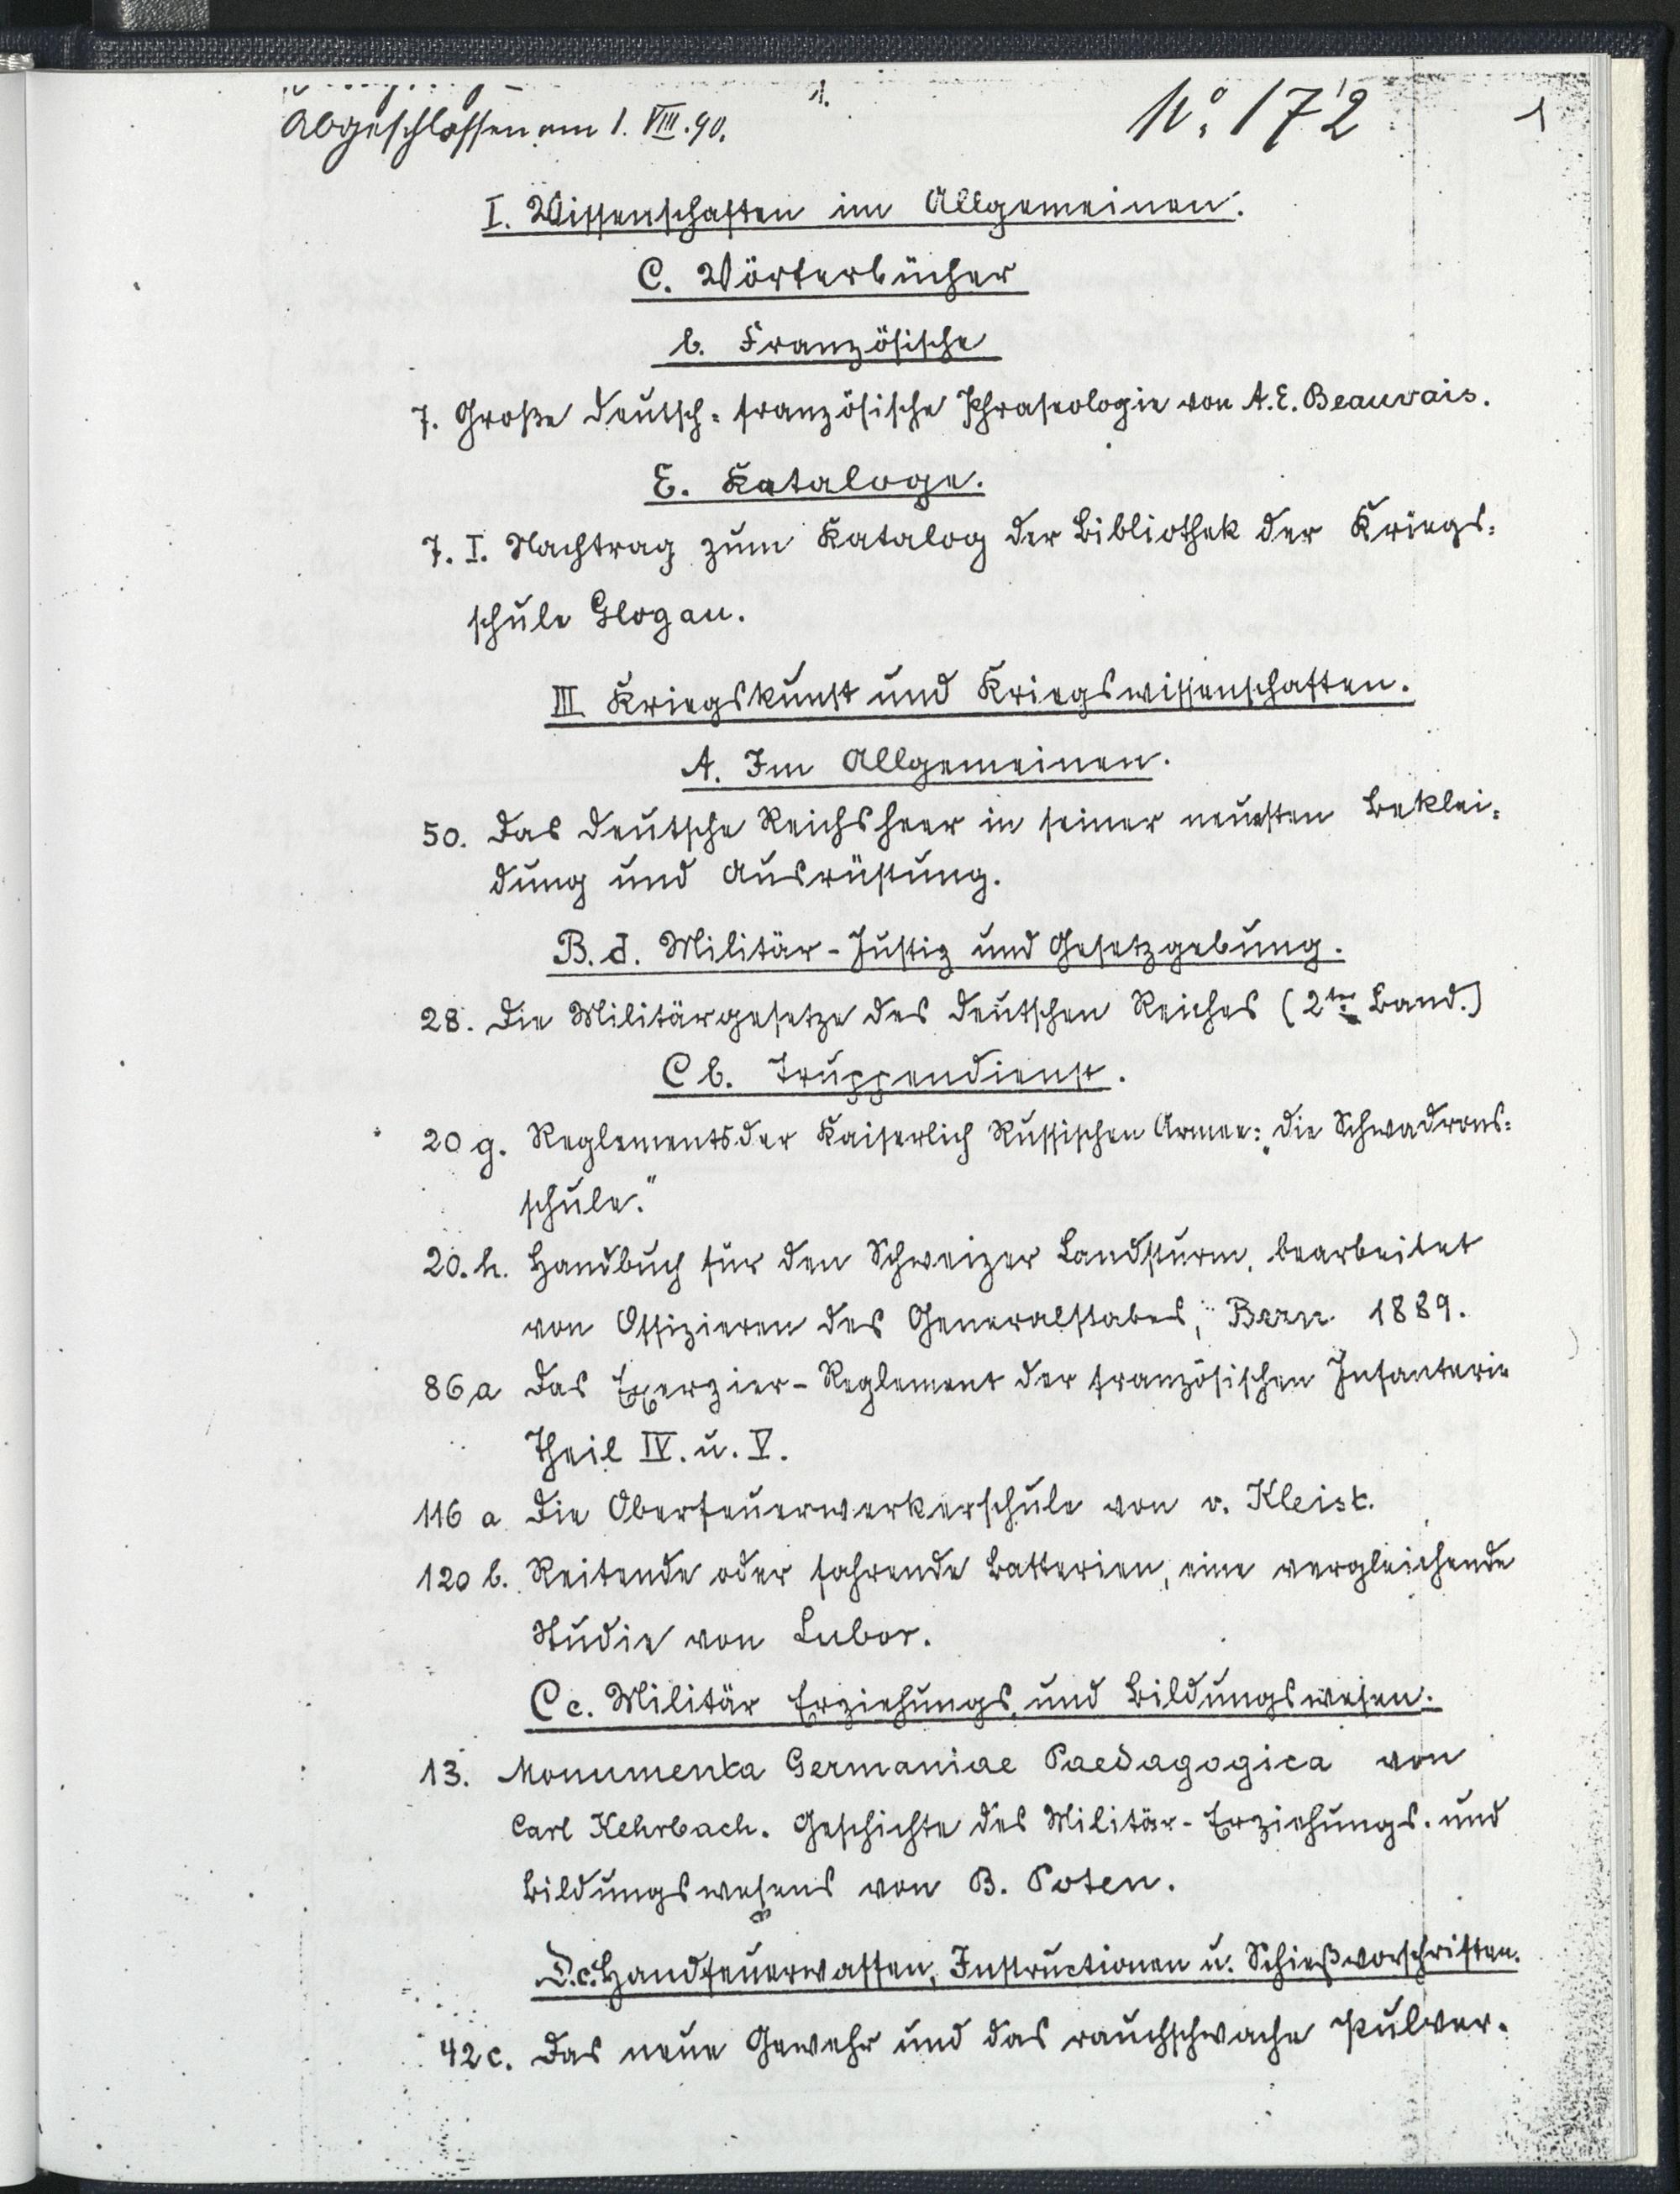 1.
Abgeschlossen am 1. VIII. 90.
No. 172
1
I. Wissenschaften im Allgemeinen.
C. Wörterbücher
b. Französische
7. Große deutsch-französische Phraseologie von A. E. Beauvais.
E. Kataloge.
7. I. Nachtrag zum Katalog der Bibliothek der Kriegs-
schule Glogau.
III Kriegskunst und Kriegswissenschaften.
A. Im Allgemeinen.
50. Das deutsche Reichsheer in seiner neuesten Beklei-
dung und Ausrüstung.
B. d. Militär-Justiz und Gesetzgebung.
28. Die Militärgesetze des deutschen Reiches (2ter Band.)
C b. Truppendienst.
20 g. Reglements der Kaiserlich Russischen Armee: „die Schwadrons-
schule."
20. h. Handbuch für den Schweizer Landsturm, bearbeitet
von Offizieren des Generalstabes, Bern 1889.
86 a Das Exerzier-Reglement der französischen Infanterie
Theil IV. u. V.
116 a Die Oberfeuerwerkerschule von v. Kleist.
120 b. Reitende oder fahrende Batterien, eine vergleichende
Studie von Lubor.
C c. Militär Erziehungs, und Bildungswesen.
13. Monumenta Germaniae Paedagogica von
Carl Kehrbach. Geschichte des Militär-Erziehungs- und
Bildungswesens von B. Poten.
D. c. Handfeuerwaffen, Instructionen u. Schießvorschriften.
42 c. Das neue Gewehr und das rauchschwache Pulver.